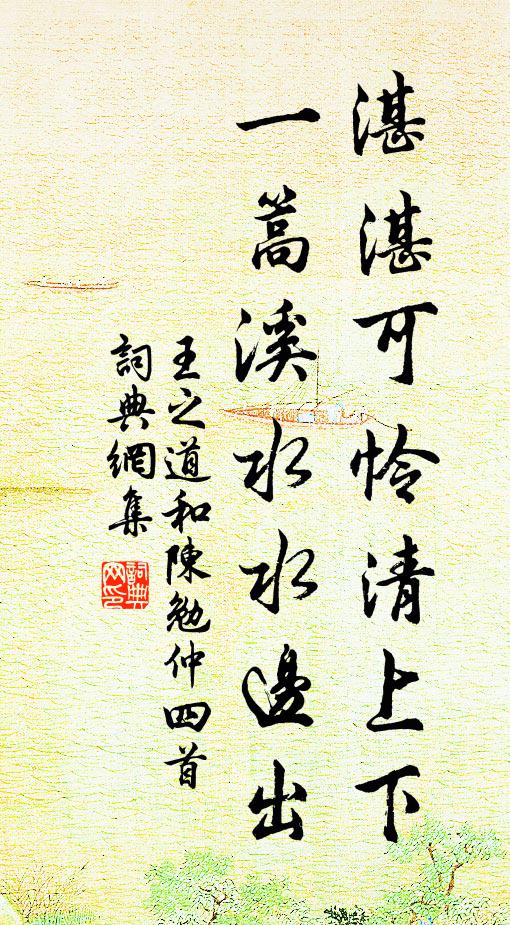 湛湛可怜清上下
一蒿溪水水邊出
王之道和陳勉仲四首
詞典網集
詞典网印